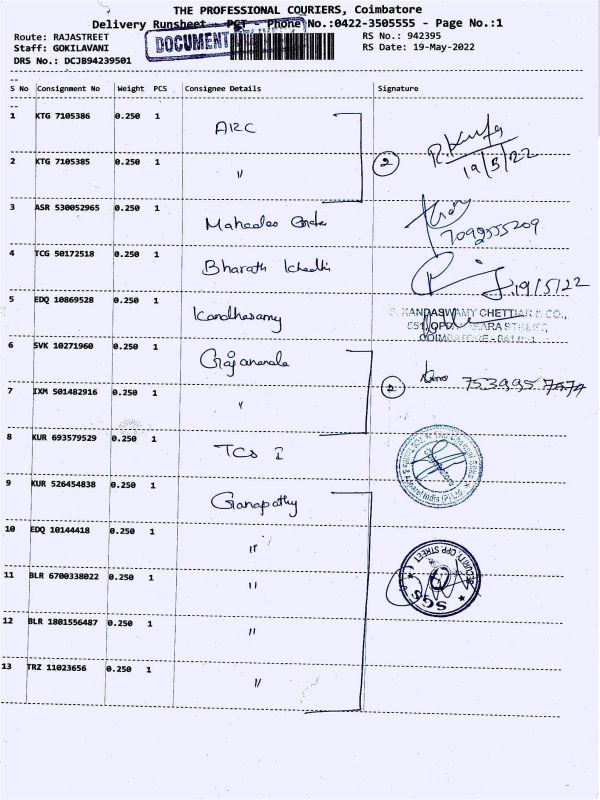 THE PROFESSIONAL COURIERS, Coimbatore
Delivery Runsheet - PCT - Phone No.:0422-3505555 - Page No.:1
Route: RAJASTREET RS No.: 942395
Staff: GOKILAVANI DOCUMENT RS Date: 19-May-2022
DRS No.: DCJB94239501
S No Consignment No Weight PCS Consignee Details Signature
1 KTG 7105386 0.250 1 ARC
2 KTG 7105385 0.250 1 " 2 19/5/22
3 ASR 530052965 0.250 1 7099555209
4 TCG 50172518 0.250 1 Bharath 19/5/22
5 EDQ 10869528 0.250 1 Kandhasamy
S. KANDASWAMY CHETTIAR & CO.,
COIMBATORE
6 SVK 10271960 0.250 1
7 IXM 501482916 0.250 1 " 2
8 KUR 693579529 0.250 1 TCS I
Apparel India (P) Ltd
9 KUR 526454838 0.250 1 Ganapathy
10 EDQ 10144418 0.250 1 "
SECURITY OPP STREET
SGS
11 BLR 6700338022 0.250 1 "
12 BLR 1801556487 0.250 1 "
13 TRZ 11023656 0.250 1 "